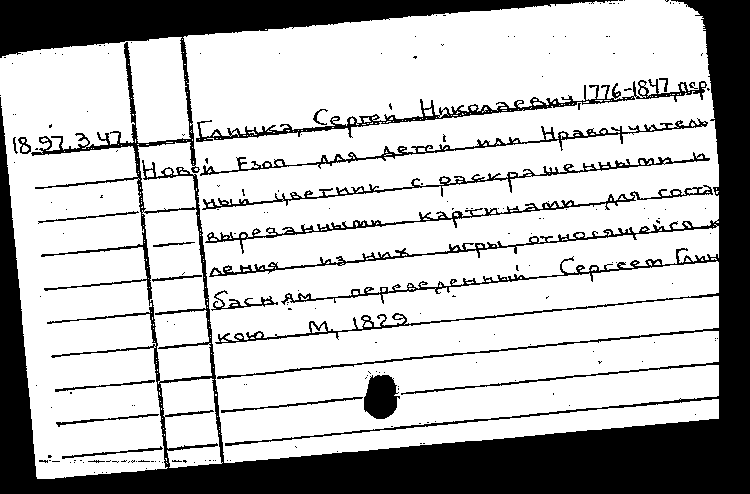 18.97.3.47. Глинка, Сергей Николаевич, 1776-1847, пер.
Новый Езоп для детей или Нравоучитель-
ный цветник с раскрашенными и
вырезанными картинами для состав
ления из них игры, относящейся к
басням, переведенный Сергеем Глин
кою. М, 1829